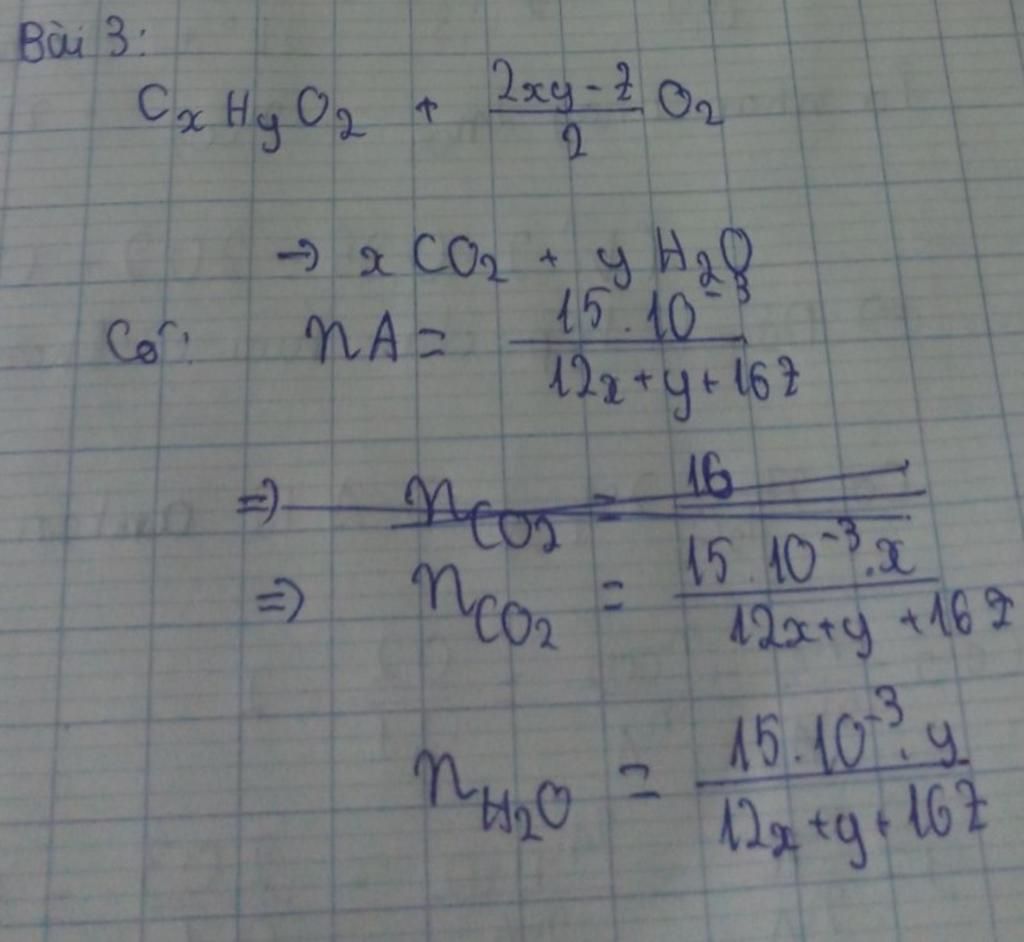 Bài 3:
CₓHyO₂ + (2xy - z)/2 O₂
→ x CO₂ + y H₂O
Có: nA = (15.10⁻³)/(12x + y + 16z)
⇒ n_CO₂ = 16
⇒ n_CO₂ = (15.10⁻³.x)/(12x+y +16z)
n_H₂O = (15.10⁻³.y)/(12x+y+16z)